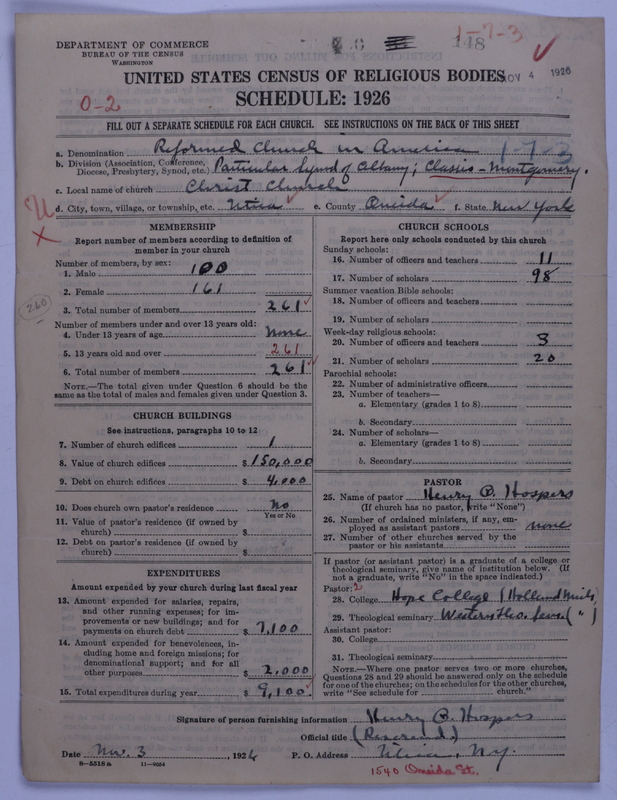 1-7-3
148
DEPARTMENT OF COMMERCE
BUREAU OF THE CENSUS
WASHINGTON
UNITED STATES CENSUS OF RELIGIOUS BODIES
NOV 4 1926
SCHEDULE: 1926
0-2
FILL OUT A SEPARATE SCHEDULE FOR EACH CHURCH. SEE INSTRUCTIONS ON THE BACK OF THIS SHEET
a. Denomination Reformed Church in America 1-7-3
b. Division (Association, Conference, Diocese, Presbytery, Synod, etc.) Particular Synod of Albany; Classis - Montgomery.
c. Local name of church Christ Church
d. City, town, village, or township, etc. Utica e. County Oneida f. State New York
MEMBERSHIP
Report number of members according to definition of
member in your church
Number of members, by sex:
1. Male 100
2. Female 161
260
3. Total number of members 261
Number of members under and over 13 years old:
4. Under 13 years of age None
5. 13 years old and over 261
6. Total number of members 261
NOTE.—The total given under Question 6 should be the
same as the total of males and females given under Question 3.
CHURCH BUILDINGS
See instructions, paragraphs 10 to 12
7. Number of church edifices 1
8. Value of church edifices $150,000
9. Debt on church edifices $4,000
10. Does church own pastor's residence No
Yes or No
11. Value of pastor's residence (if owned by
church) $
12. Debt on pastor's residence (if owned by
church) $
EXPENDITURES
Amount expended by your church during last fiscal year
13. Amount expended for salaries, repairs,
and other running expenses; for im-
provements or new buildings; and for
payments on church debt $7,100
14. Amount expended for benevolences, in-
cluding home and foreign missions; for
denominational support; and for all
other purposes $2,000
15. Total expenditures during year $9,100
CHURCH SCHOOLS
Report here only schools conducted by this church
Sunday schools:
16. Number of officers and teachers 11
17. Number of scholars 98
Summer vacation Bible schools:
18. Number of officers and teachers
19. Number of scholars
Week-day religious schools:
20. Number of officers and teachers 3
21. Number of scholars 20
Parochial schools:
22. Number of administrative officers
23. Number of teachers—
a. Elementary (grades 1 to 8)
b. Secondary
24. Number of scholars—
a. Elementary (grades 1 to 8)
b. Secondary
PASTOR
25. Name of pastor Henry P. Hospers
(If church has no pastor, write "None")
26. Number of ordained ministers, if any, em-
ployed as assistant pastors none
27. Number of other churches served by the
pastor or his assistants
If pastor (or assistant pastor) is a graduate of a college or
theological seminary, give name of institution below. (If
not a graduate, write "No" in the space indicated.)
Pastor: 2
28. College Hope College (Holland Mich.)
29. Theological seminary Western Theo. Sem. ( " )
Assistant pastor:
30. College
31. Theological seminary
NOTE.—Where one pastor serves two or more churches,
Questions 28 and 29 should be answered only on the schedule
for one of the churches; on the schedules for the other churches,
write "See schedule for church."
Signature of person furnishing information Henry P. Hospers
Official title (Reverend)
Date Nov. 3, 1926 P. O. Address Utica, N.Y.
8-5518a 11-9654
1540 Oneida St.